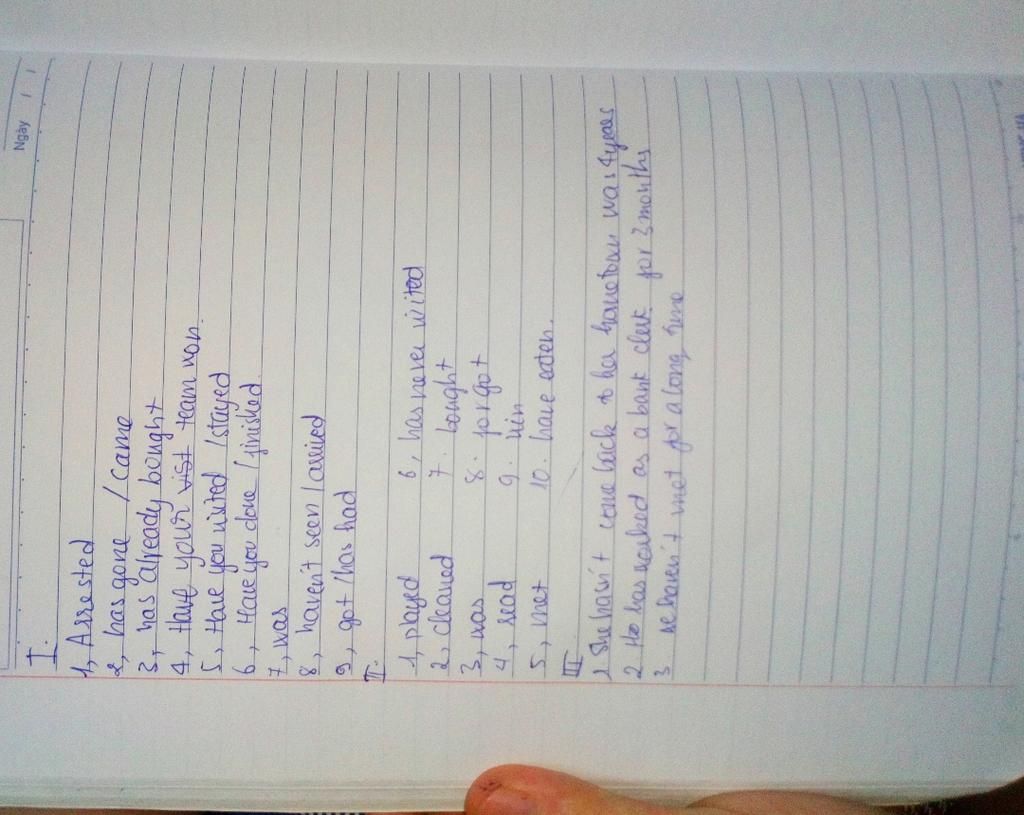 Ngày / /
I.
1, Arrested
2, has gone / came
3, has already bought
4, Have your team won.
5, Have you visited / stayed
6, Have you done / finished.
7, was
8, haven't seen / arrived
9, got / has had
II.
1, played 6, has never
2, cleaned 7. bought
3, was 8. forgot
4, read 9.
5, met 10. have eaten.
III
1. She hasn't come back to her hometown was 4 years
2. He has worked as a bank clerk for 3 months
3 we haven't met for a long time